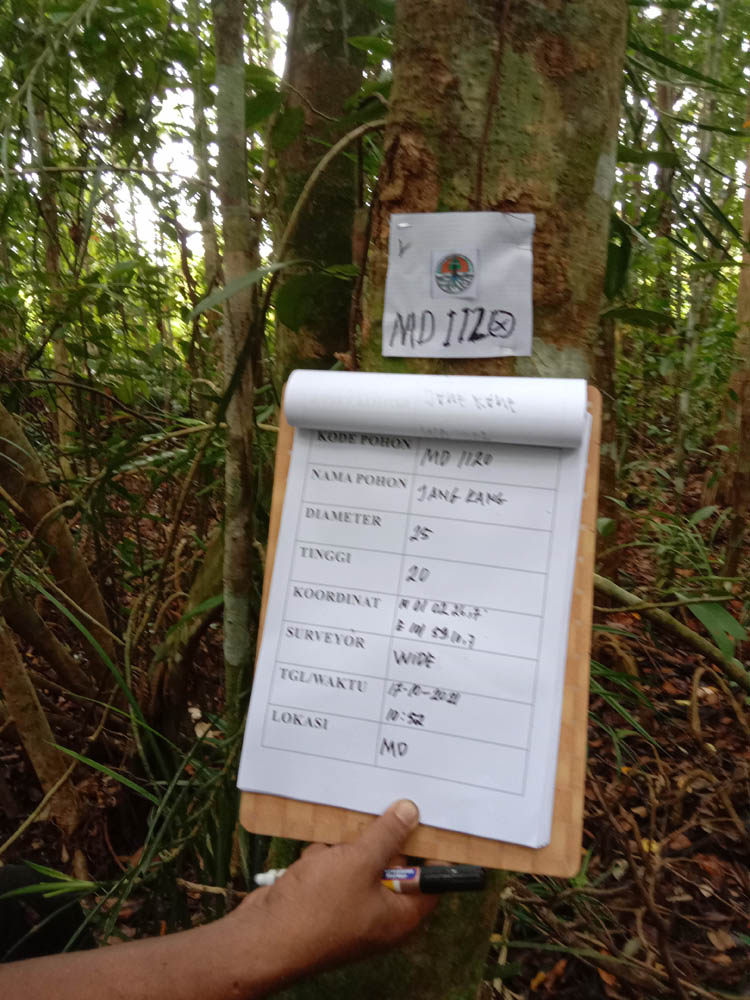 MD 1120
KODE POHON MD 1120
NAMA POHON JANG KANG
DIAMETER 25
TINGGI 20
KOORDINAT N 01 02 26.7
E 101 59 10.7
SURVEYOR WIDE
TGL/WAKTU 17-10-2021
10:52
LOKASI MD